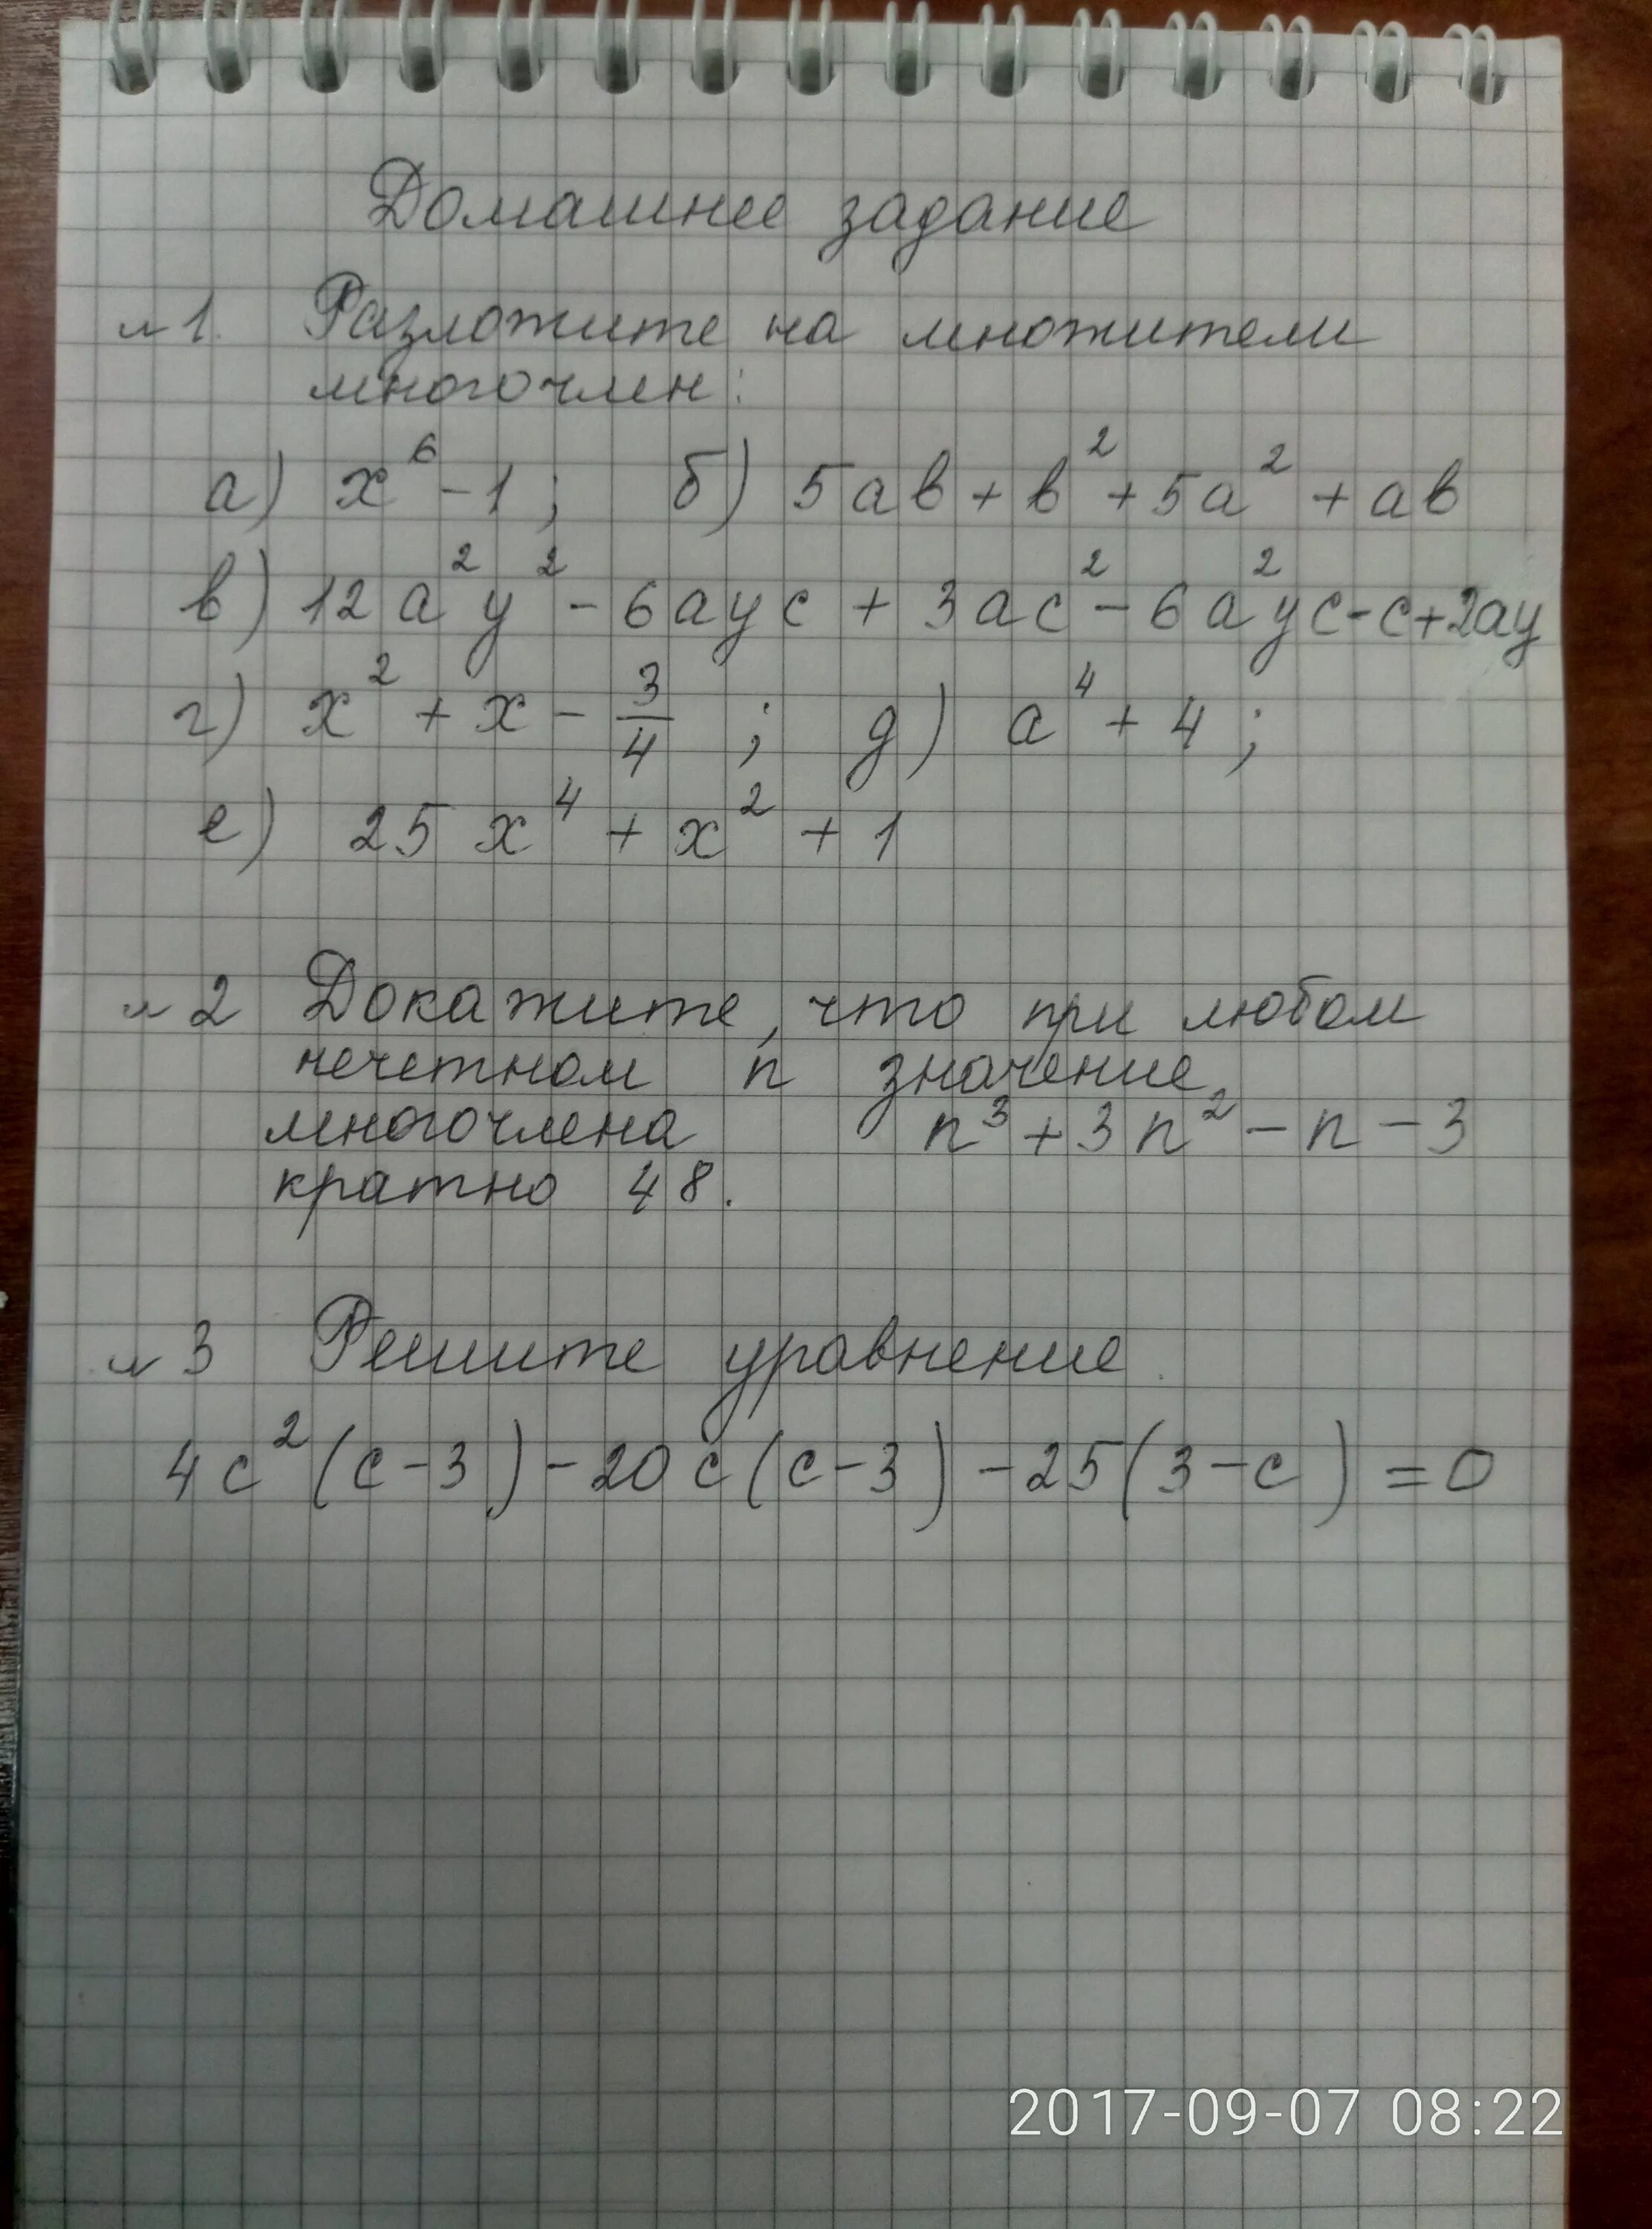 Домашнее задание
№1. Разложите на множители
многочлен:
а) x⁶ - 1; б) 5ab + b² + 5a² + ab
в) 12a²y² - 6ayc + 3ac² - 6a²yc - c + 2ay
г) x² + x - 3/4 ; д) a⁴ + 4 ;
е) 25x⁴ + x² + 1
№2 Докажите, что при любом
нечетном n значение
многочлена n³ + 3n² - n - 3
кратно 48.
№3 Решите уравнение.
4c²(c-3) - 20c(c-3) - 25(3-c) = 0
2017-09-07 08:22